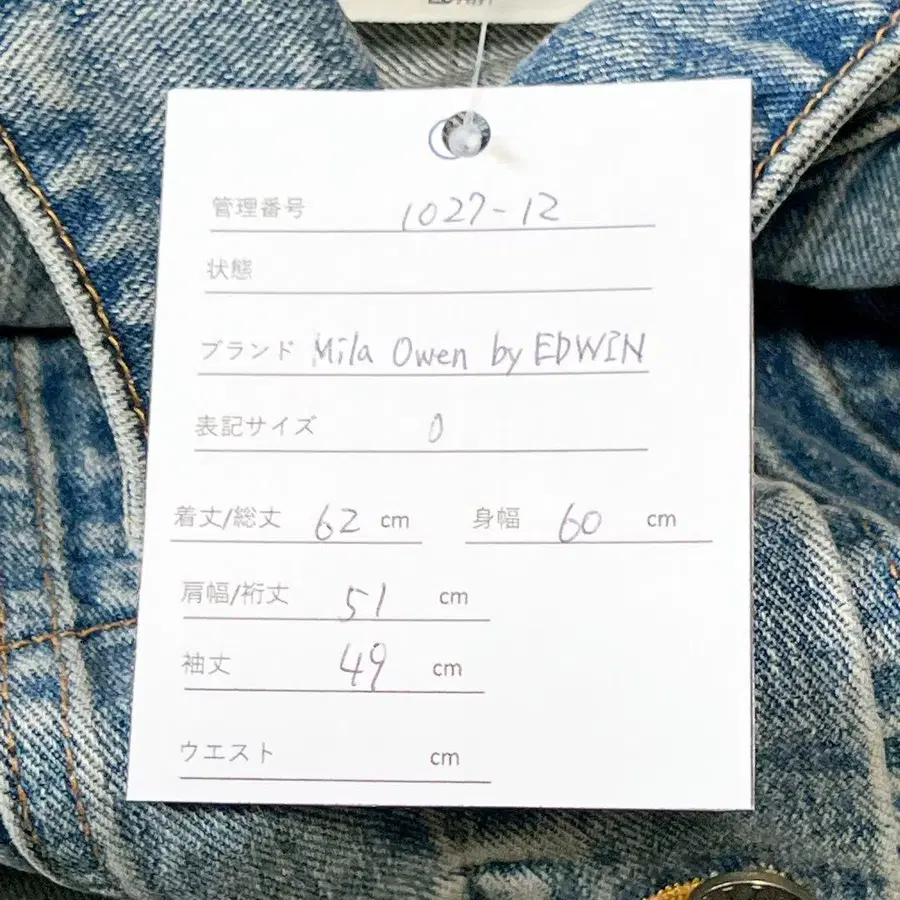 EDWIN
管理番号 1027-12
状態
ブランド Mila Owen by EDWIN
表記サイズ 0
着丈/総丈 62 cm 身幅 60 cm
肩幅/裄丈 51 cm
袖丈 49 cm
ウエスト cm